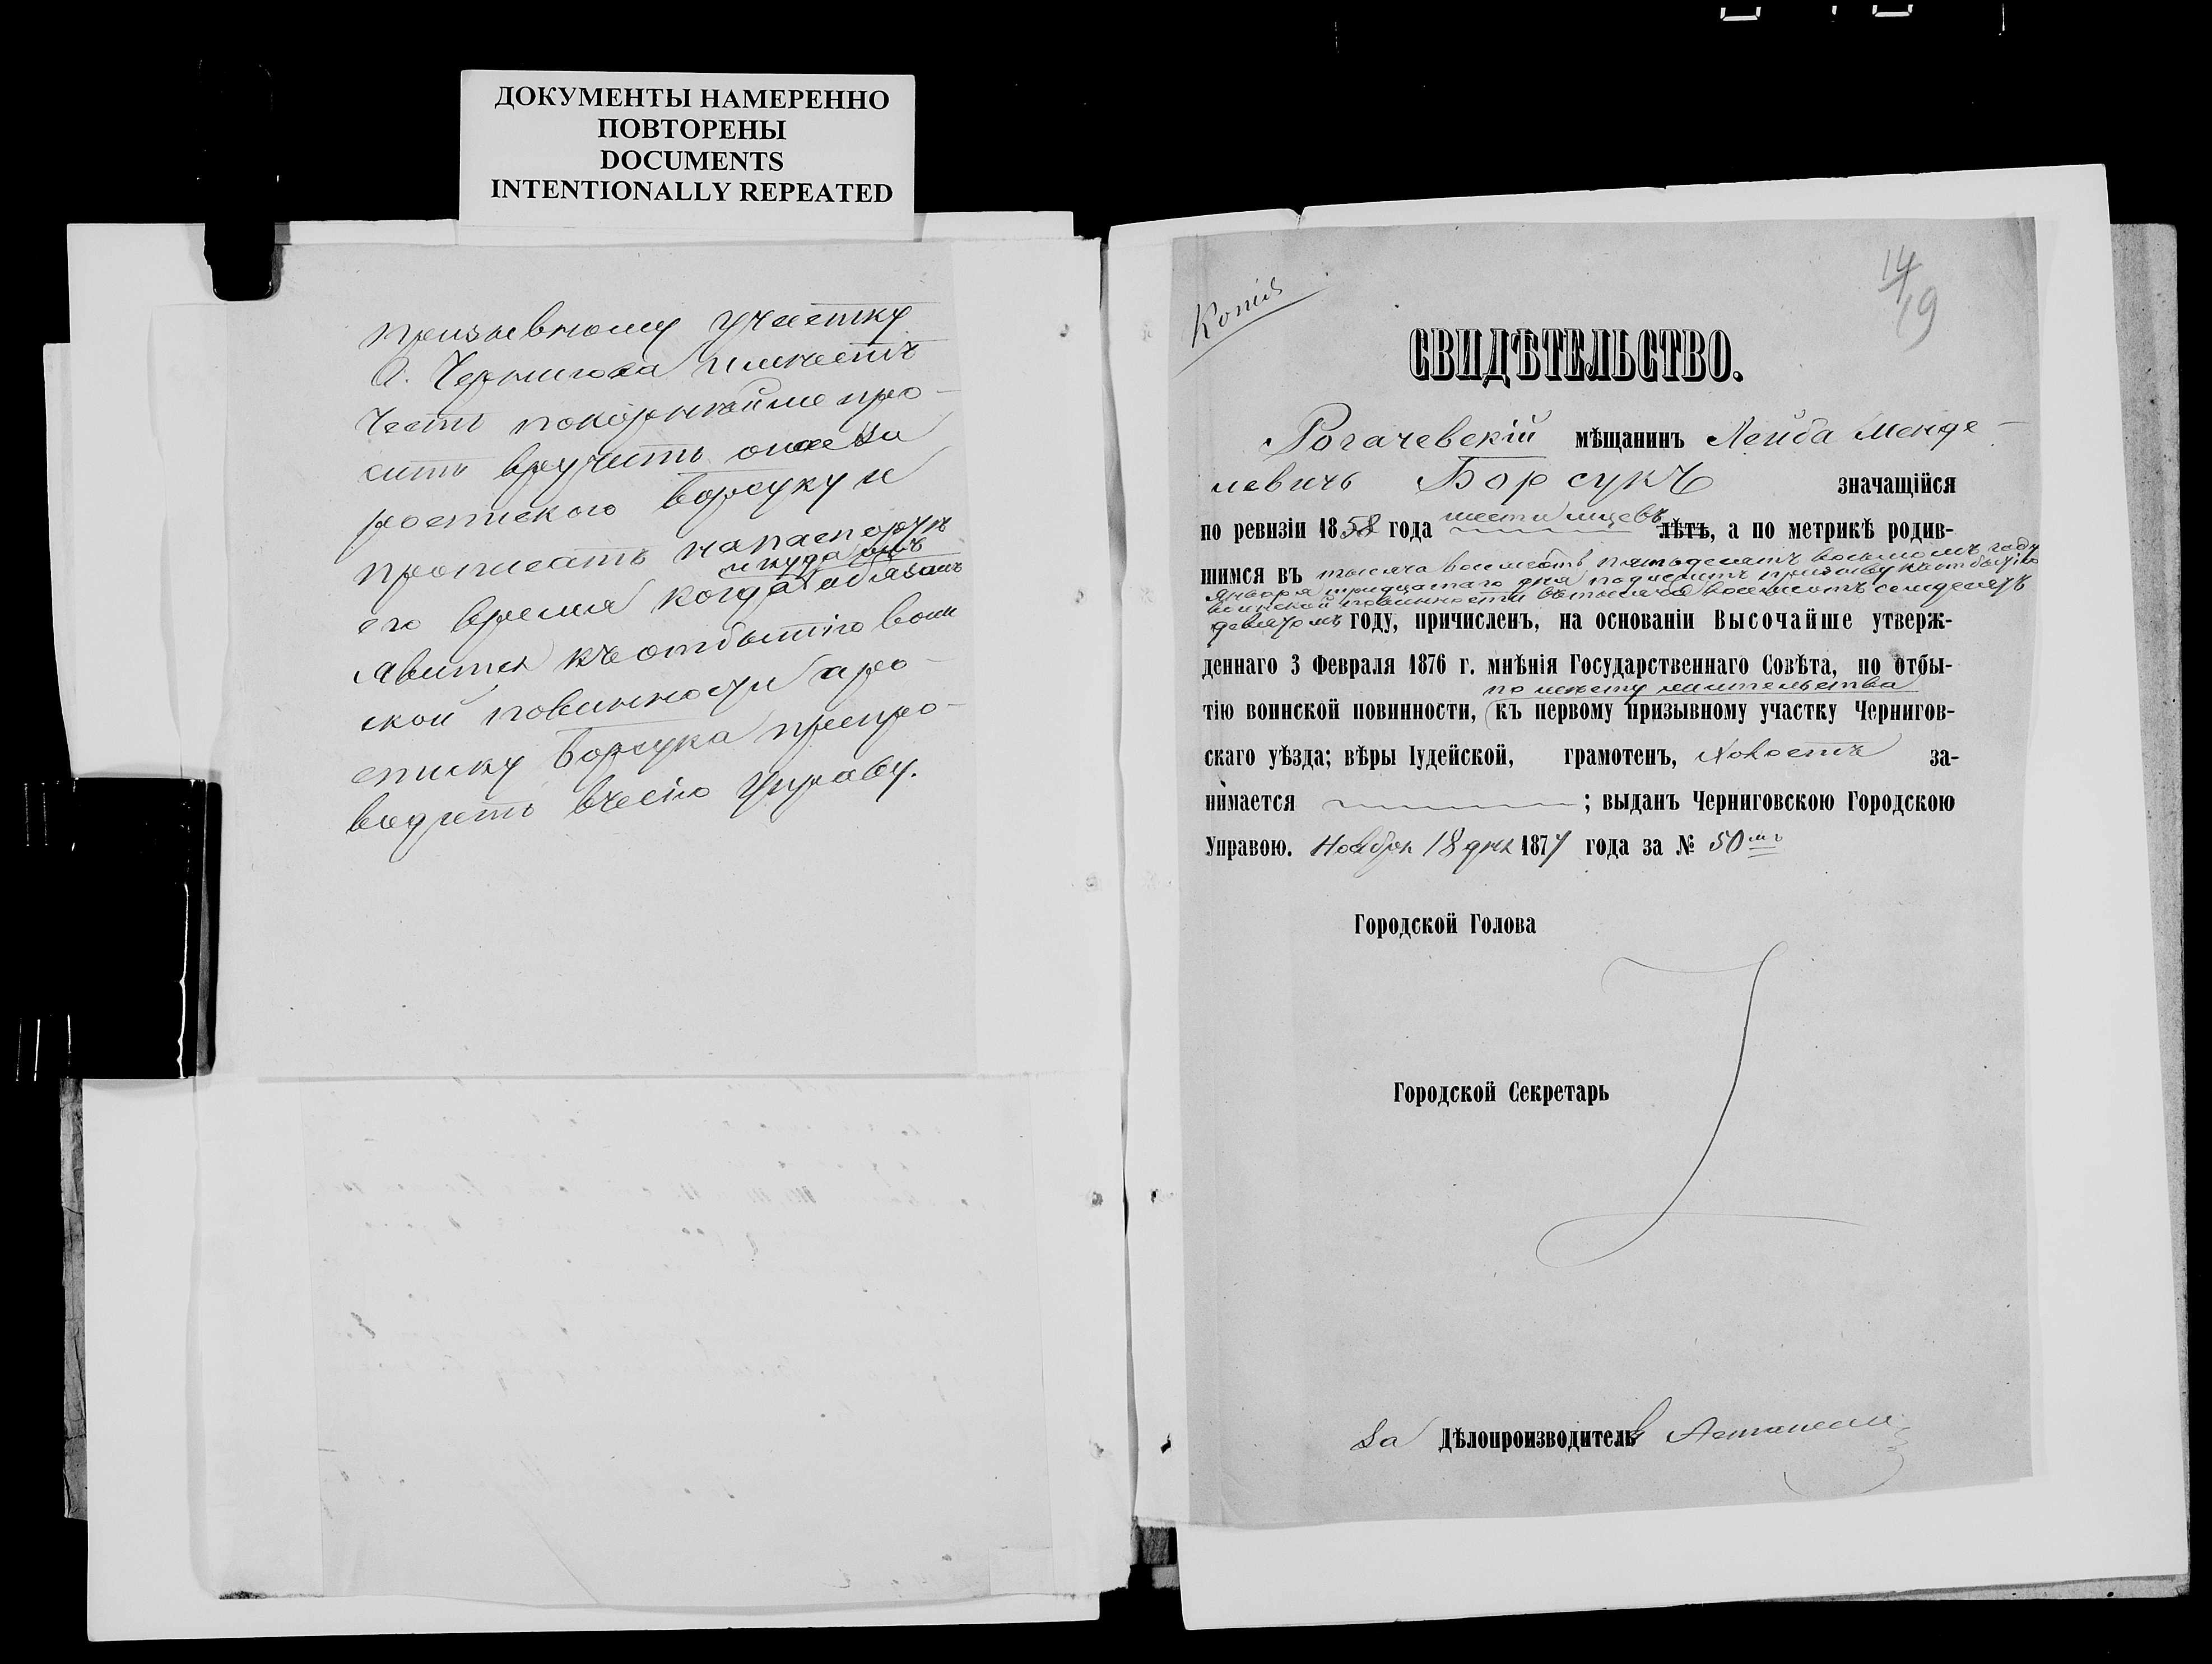 ДОКУМЕНТЫ НАМЕРЕННО
ПОВТОРЕНЫ
DOCUMENTS
INTENTIONALLY REPEATED
призывному участку
Г. Чернигова имѣетъ
честь покорнѣйше про-
сить вручить оное за
роспискою Борсуку и
прописать на паспортѣ
и куда онъ
его время когда обязанъ
явится къ отбытію воин
ской повинности а ро-
списку Борсука препро-
водить въ сію Управу.
Копія
14
19
СВИДѢТЕЛЬСТВО.
Рогачевскій мѣщанинъ Лейба Менде-
левичъ Борсукъ значащійся
по ревизіи 1858 года шести мцевъ лѣтъ, а по метрикѣ родив-
шимся въ тысяча восемьсотъ пятьдесятъ восьмомъ году
Января тридцатаго дня подлежитъ призыву къ отбытію
воинской повинности въ тысяча восемьсотъ семьдесятъ
девятомъ году, причисленъ, на основаніи Высочайше утверж-
деннаго 3 Февраля 1876 г. мнѣнія Государственнаго Совѣта, по отбы-
по мѣсту жительства
тію воинской повинности, (къ первому призывному участку Чернигов-
скаго уѣзда; вѣры Іудейской, грамотенъ, холостъ за-
нимается ; выданъ Черниговскою Городскою
Управою. Ноября 18 дня 1877 года за № 50мъ
Городской Голова
Городской Секретарь
За Дѣлопроизводитель